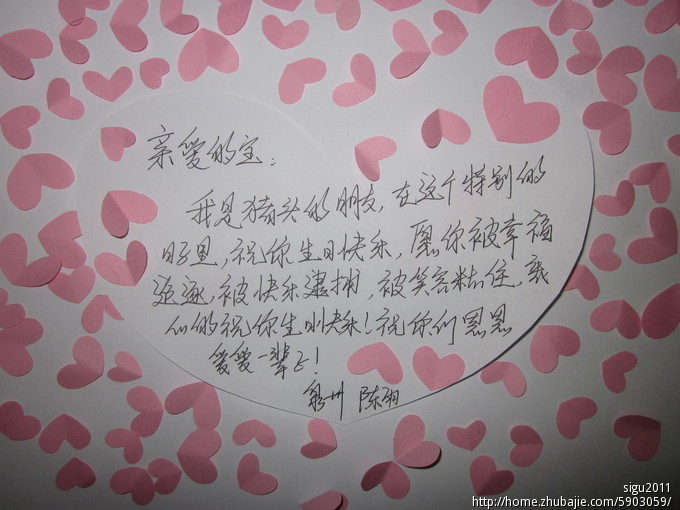 亲爱的宝：
我是猪头的朋友，在这个特别的
日子里，祝你生日快乐，愿你被幸福
追逐，被快乐逮捕，被笑容粘住，我
们的祝你生日快乐！祝你们恩恩
爱爱一辈子！
泉州 陈
sigu2011
http://home.zhubajie.com/5903059/